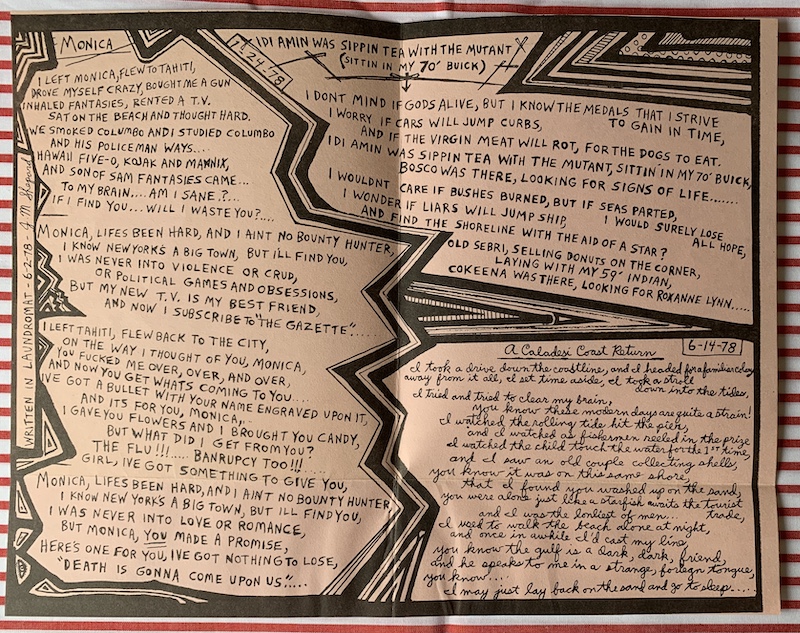 MONICA
I LEFT MONICA, FLEW TO TAHITI,
DROVE MYSELF CRAZY, BOUGHT ME A GUN
INHALED FANTASIES, RENTED A T.V.
SAT ON THE BEACH AND THOUGHT HARD.
WE SMOKED COLUMBO AND I STUDIED COLUMBO
AND HIS POLICEMAN WAYS....
HAWAII FIVE-O, KOJAK AND MANNIX,
AND SON OF SAM FANTASIES CAME...
TO MY BRAIN.... AM I SANE.?...
IF I FIND YOU... WILL I WASTE YOU?....
MONICA, LIFES BEEN HARD, AND I AINT NO BOUNTY HUNTER,
I KNOW NEW YORKS A BIG TOWN, BUT I'LL FIND YOU,
I WAS NEVER INTO VIOLENCE OR CRUD,
OR POLITICAL GAMES AND OBSESSIONS,
BUT MY NEW T.V. IS MY BEST FRIEND,
AND NOW I SUBSCRIBE TO "THE GAZETTE"......
I LEFT TAHITI, FLEW BACK TO THE CITY,
ON THE WAY I THOUGHT OF YOU, MONICA,
YOU FUCKED ME OVER, OVER, AND OVER,
AND NOW YOU GET WHATS COMING TO YOU....
IVE GOT A BULLET WITH YOUR NAME ENGRAVED UPON IT,
AND ITS FOR YOU, MONICA,..
I GAVE YOU FLOWERS AND I BROUGHT YOU CANDY,
BUT WHAT DID I GET FROM YOU?
THE FLU!!!..... BANRUPCY TOO!!!.....
GIRL, IVE GOT SOMETHING TO GIVE YOU,
MONICA, LIFES BEEN HARD, AND I AINT NO BOUNTY HUNTER
I KNOW NEW YORK'S A BIG TOWN, BUT ILL FIND YOU,
I WAS NEVER INTO LOVE OR ROMANCE,
BUT MONICA, YOU MADE A PROMISE,
HERE'S ONE FOR YOU, IVE GOT NOTHING TO LOSE,
"DEATH IS GONNA COME UPON US".....
WRITTEN IN LAUNDROMAT - 6-2-78 - J.M. Shepard
1-24-78
IDI AMIN WAS SIPPIN TEA WITH THE MUTANT
(SITTIN IN MY 70' BUICK)
I DONT MIND IF GODS ALIVE, BUT I KNOW THE MEDALS THAT I STRIVE
TO GAIN IN TIME,
I WORRY IF CARS WILL JUMP CURBS,
AND IF THE VIRGIN MEAT WILL ROT, FOR THE DOGS TO EAT.
IDI AMIN WAS SIPPIN TEA WITH THE MUTANT, SITTIN' IN MY 70' BUICK,
BOSCO WAS THERE, LOOKING FOR SIGNS OF LIFE.......
I WOULDNT CARE IF BUSHES BURNED, BUT IF SEAS PARTED,
I WOULD SURELY LOSE
ALL HOPE,
I WONDER IF LIARS WILL JUMP SHIP,
AND FIND THE SHORELINE WITH THE AID OF A STAR?
OLD SEBRI, SELLING DONUTS ON THE CORNER,
LAYING WITH MY 59¢ INDIAN,
COKEENA WAS THERE, LOOKING FOR ROXANNE LYNN.....
6-14-78
A Caladesi Coast Return
I took a drive down the coastline, and I headed for a familiar
away from it all, I set time aside, I took a stroll
down into the tides,
I tried and tried to clear my brain,
you know these modern days are quite a strain!
I watched the rolling tide hit the pier,
and I watched as fishermen reeled in the prize
I watched the child touch the water for the 1st time,
and I saw an old couple collecting shells,
you know it was on this same shore,
that I found you washed up on the sand,
you were alone just like a starfish awaits the tourist
trade,
and I was the lonliest of men.
I used to walk the beach alone at night,
and once in awhile I'd cast my line,
you know the gulf is a dark, dark, friend,
and he speaks to me in a strange, foreign tongue,
you know....
I may just lay back on the sand and go to sleep.....